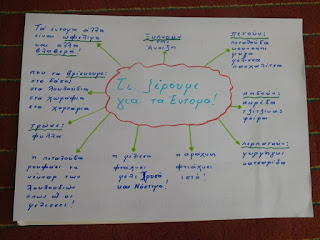 Τα έντομα άλλα
είναι ωφέλιμα
και άλλα
βλαβερά!
Ξυπνούν
την
Άνοιξη
πετούν:
πεταλούδα
κουνούπι
μύγα
μέλισσα
πασχαλίτσα
που τα βρίσκουμε:
στο δάσος
στα λουλούδια
στα χωράφια
στα χορτάρια
Τι ξέρουμε
για τα Έντομα!
πηδούν:
ακρίδα
τζίτζικας
ψείρα
τρώνε:
φύλλα
περπατούν:
μυρμήγκι
κατσαρίδα
η πεταλούδα
ρουφάει το
νέκταρ των
λουλουδιών
όπως κι οι
μέλισσες!
η μέλισσα
φτιάχνει
μέλι
και
η αράχνη
φτιάχνει
ιστό!